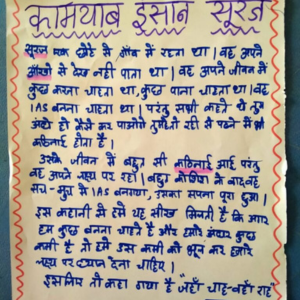 कामयाब इंसान सूरज
सूरज एक छोटे से गाँव में रहता था। वह अपने
आँखो से देख नही पाता था। वह अपने जीवन में
कुछ करना चाहता था, कुछ पाना चाहता था। वह
IAS बनना चाहता था। परंतु सभी कहते थे तुम
अंधे हो कैसे कर पाओगे तुम्हें तो सही से पढने में भी
कठिनाई होता है।
उसके जीवन में बहुत सी कठिनाई आई परंतु
वह अपने लक्ष्य पर रहा। बहुत कोशिश के बाद वह
सच-मुच में IAS बन गया, उसका सपना पूरा हुआ।
इस कहानी में हमें यह सीख मिलती है कि अगर
हम कुछ बनना चाहते है और हमारे अंदर कुछ
कमी है तो हमें उस कमी को भूल कर हमारे
लक्ष्य पर ध्यान देना चाहिए।
इसलिए तो कहा गया है "जहाँ चाह-वहाँ राह"